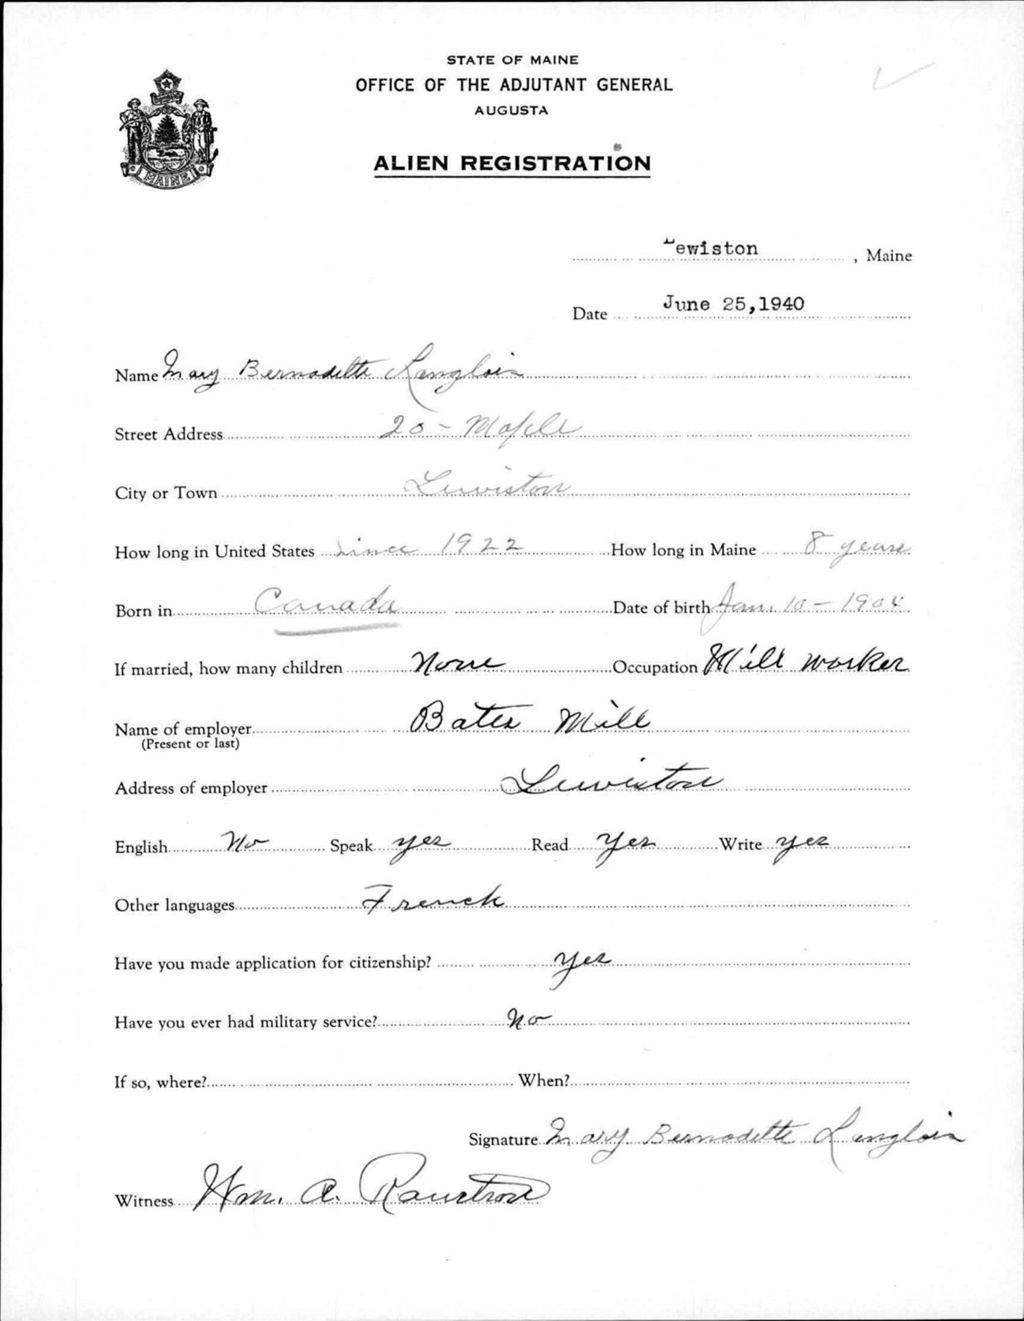 STATE OF MAINE
OFFICE OF THE ADJUTANT GENERAL
AUGUSTA
ALIEN REGISTRATION
MAINE
Lewiston, Maine
Date June 25,1940
Name Mary Bernadette Langlois
Street Address 20 - Maple
City or Town Lewiston
How long in United States Since 1922 How long in Maine 8 years
Born in Canada Date of birth Jan. 10 - 1904
If married, how many children None Occupation Mill worker
Name of employer Bates Mill
(Present or last)
Address of employer Lewiston
English No Speak yes Read Yes Write yes
Other languages French
Have you made application for citizenship? Yes
Have you ever had military service? No
If so, where? When?
Signature Mary Bernadette Langlois
Witness Wm. A.